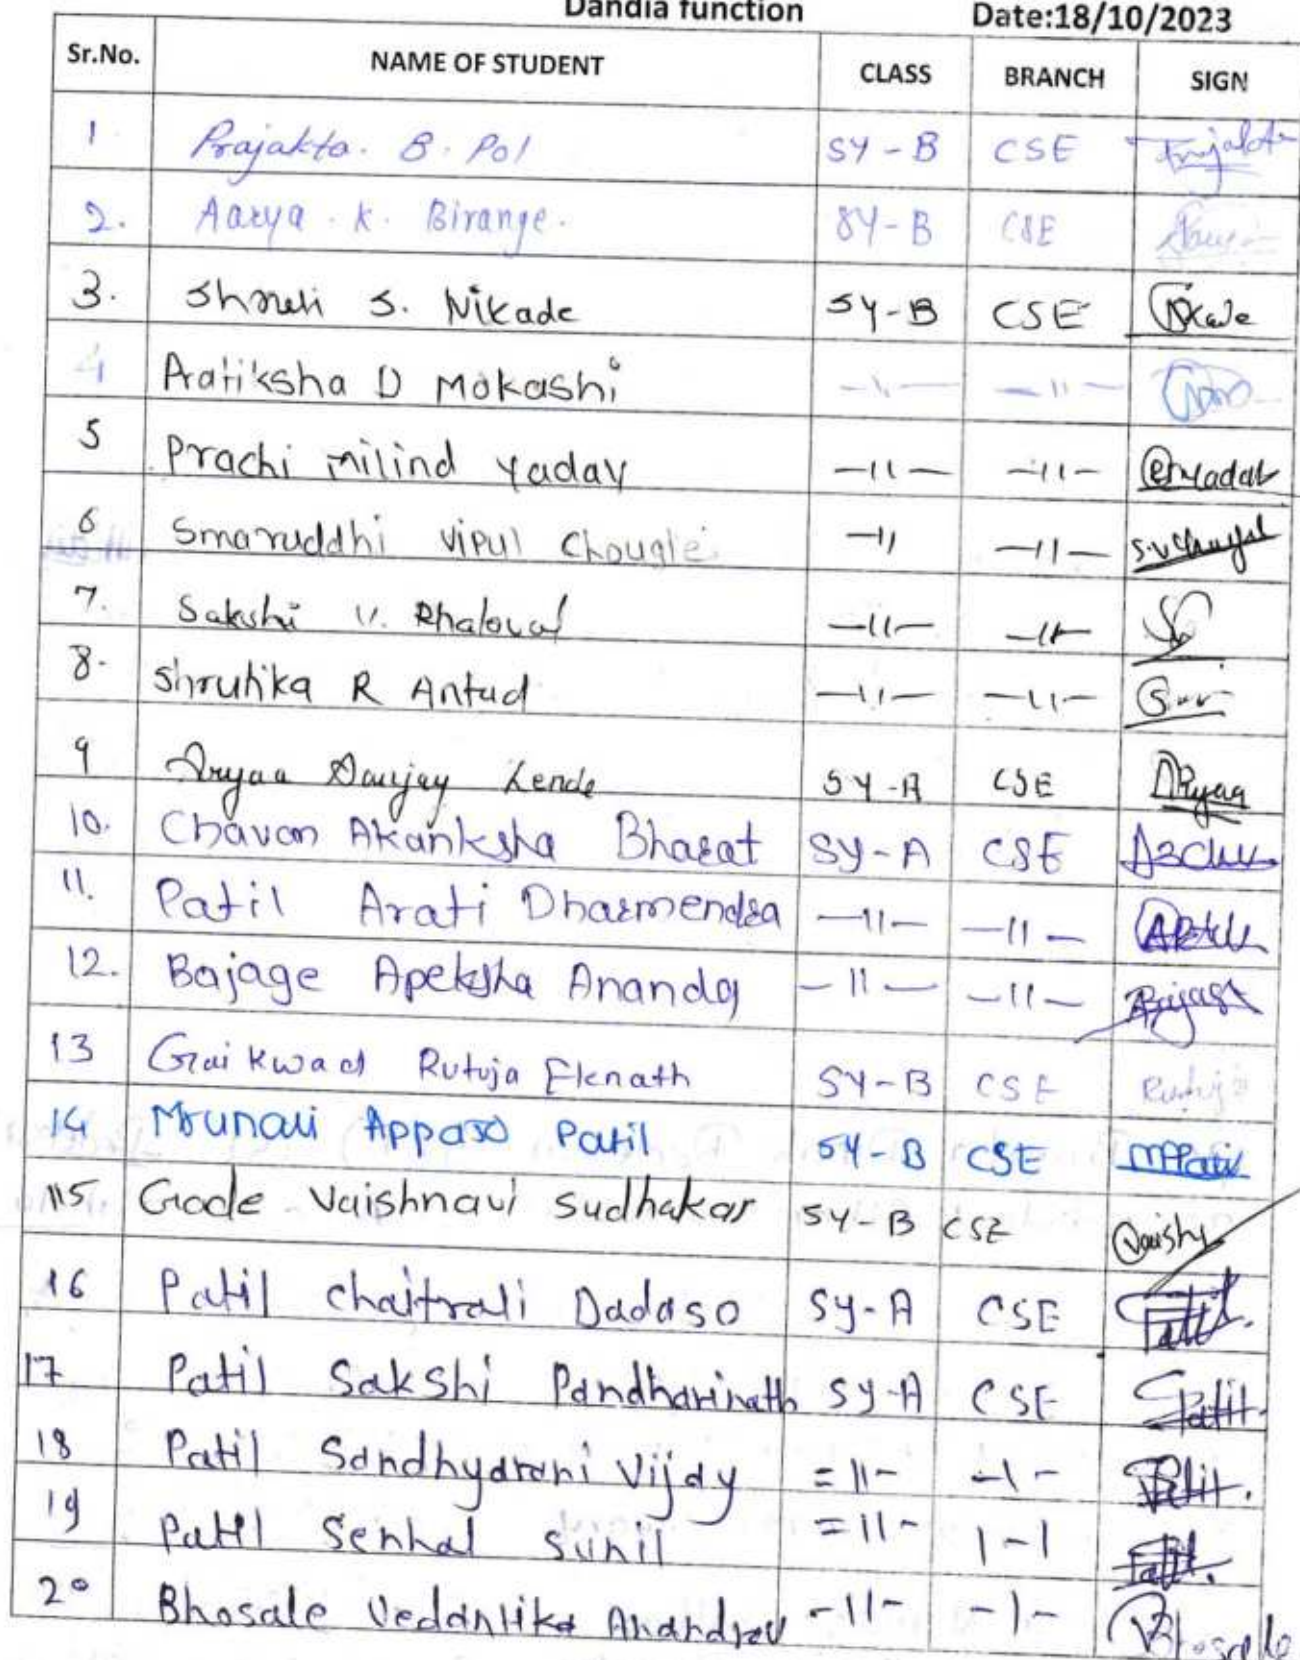 Dandia function Date:18/10/2023
Sr.No. NAME OF STUDENT CLASS BRANCH SIGN
1 Prajakta. B. Pol SY-B CSE
2. Aarya. K. Birange. SY-B CSE
3. Shruti S. Nikade SY-B CSE
4 Aatiksha D Mokashi -11- -11-
5 Prachi milind Yadav -11- -11-
6 Smaruddhi Vipul Chougle -11 -11- S.V
7. Sakshi V. -11- -11-
8. Shrutika R Antad -11- -11-
9 Aryaa Sanjay Lende SY-A CSE Aryaa
10. Chavan Akanksha Bharat SY-A CSE
11. Patil Arati Dharmendra -11- -11-
12. Bajage Apeksha Ananda -11- -11-
13 Gaikwad Rutuja Eknath SY-B CSE Rutuja
14 Mrunali Appaso Patil SY-B CSE
15 Gode Vaishnavi Sudhakar SY-B CSE Vaishu
16 Patil chaitrali Dadaso SY-A CSE Patil.
17 Patil Sakshi Pandharinath SY-A CSE Patil.
18 Patil Sandhyarani Vijay =11- -1- Patil.
19 Patil Senhal Sunil =11- 1-1 Patil.
20 Bhosale Vedantika Anandrav -11- -1- Bhosale